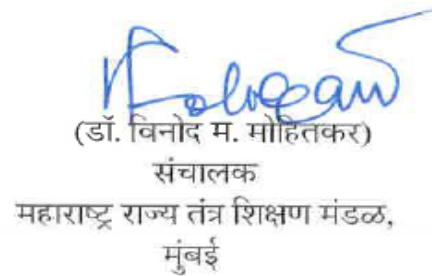 (डॉ. विनोद म. मोहितकर)
संचालक
महाराष्ट्र राज्य तंत्र शिक्षण मंडळ,
मुंबई